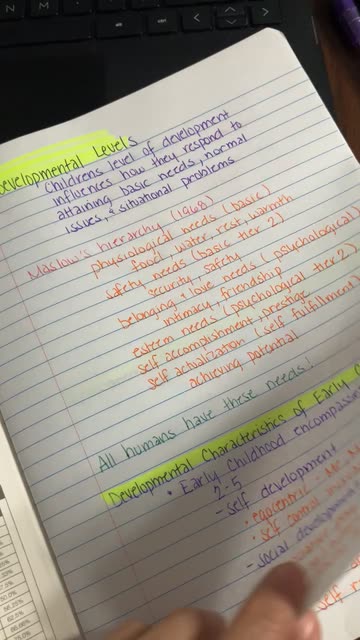 Developmental Levels
Childrens level of development
influences how they respond to
attaining basic needs, normal
issues, & situational problems
Maslow's hierarchy (1968)
physiological needs (basic)
food, water, rest, warmth
safety needs (basic tier 2)
security, safety
belonging & love needs (psychological)
intimacy, friendship
esteem needs (psychological tier 2)
self accomplishment, prestige
self actualization (self fulfillment)
achieving potential
All humans have these needs!
Developmental Characteristics of Early
• Early Childhood encompasses
2-5
- self development
• egocentric
• self control
- social development